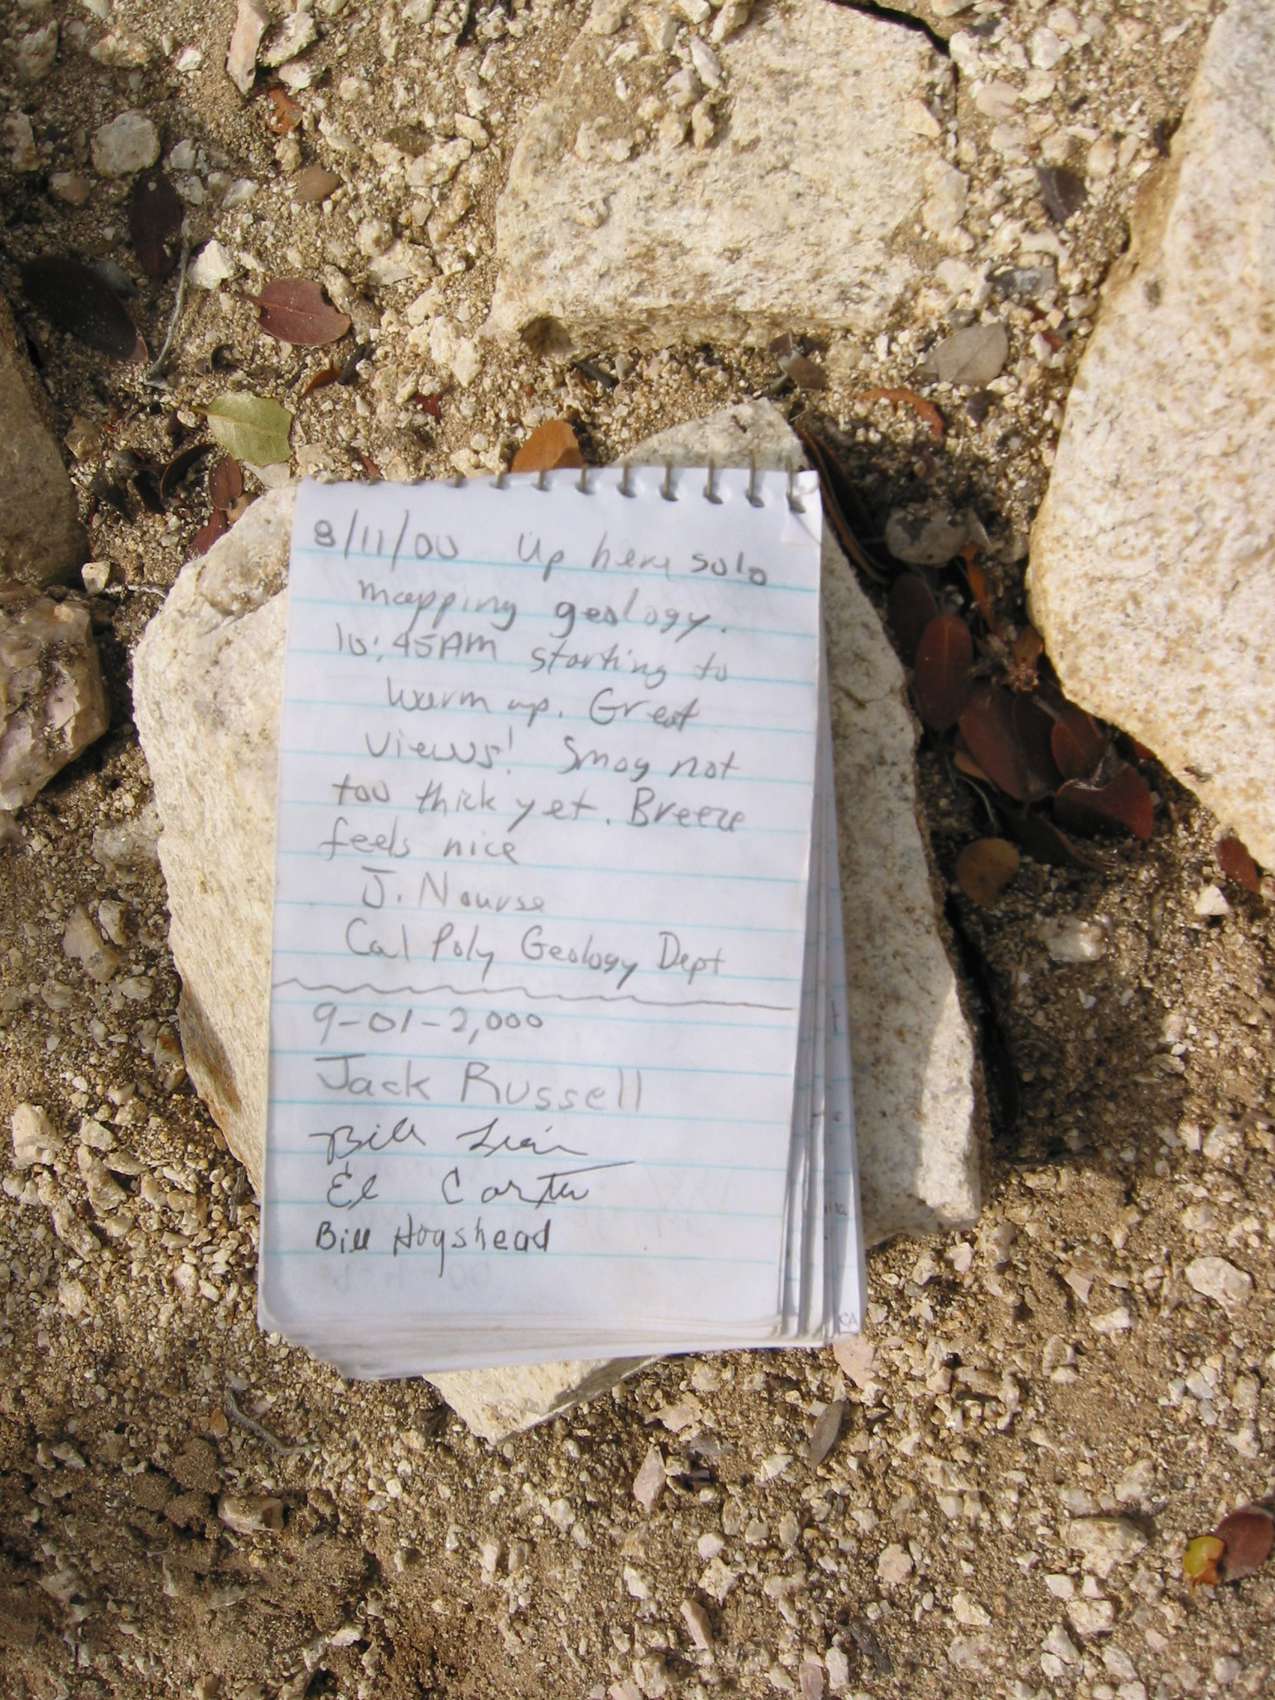 8/11/00 Up here solo
mapping geology.
10:45AM starting to
warm up. Great
views! Smog not
too thick yet. Breeze
feels nice
J. Nourse
Cal Poly Geology Dept
9-01-2,000
Jack Russell
Bill
El Carter
Bill Hogshead